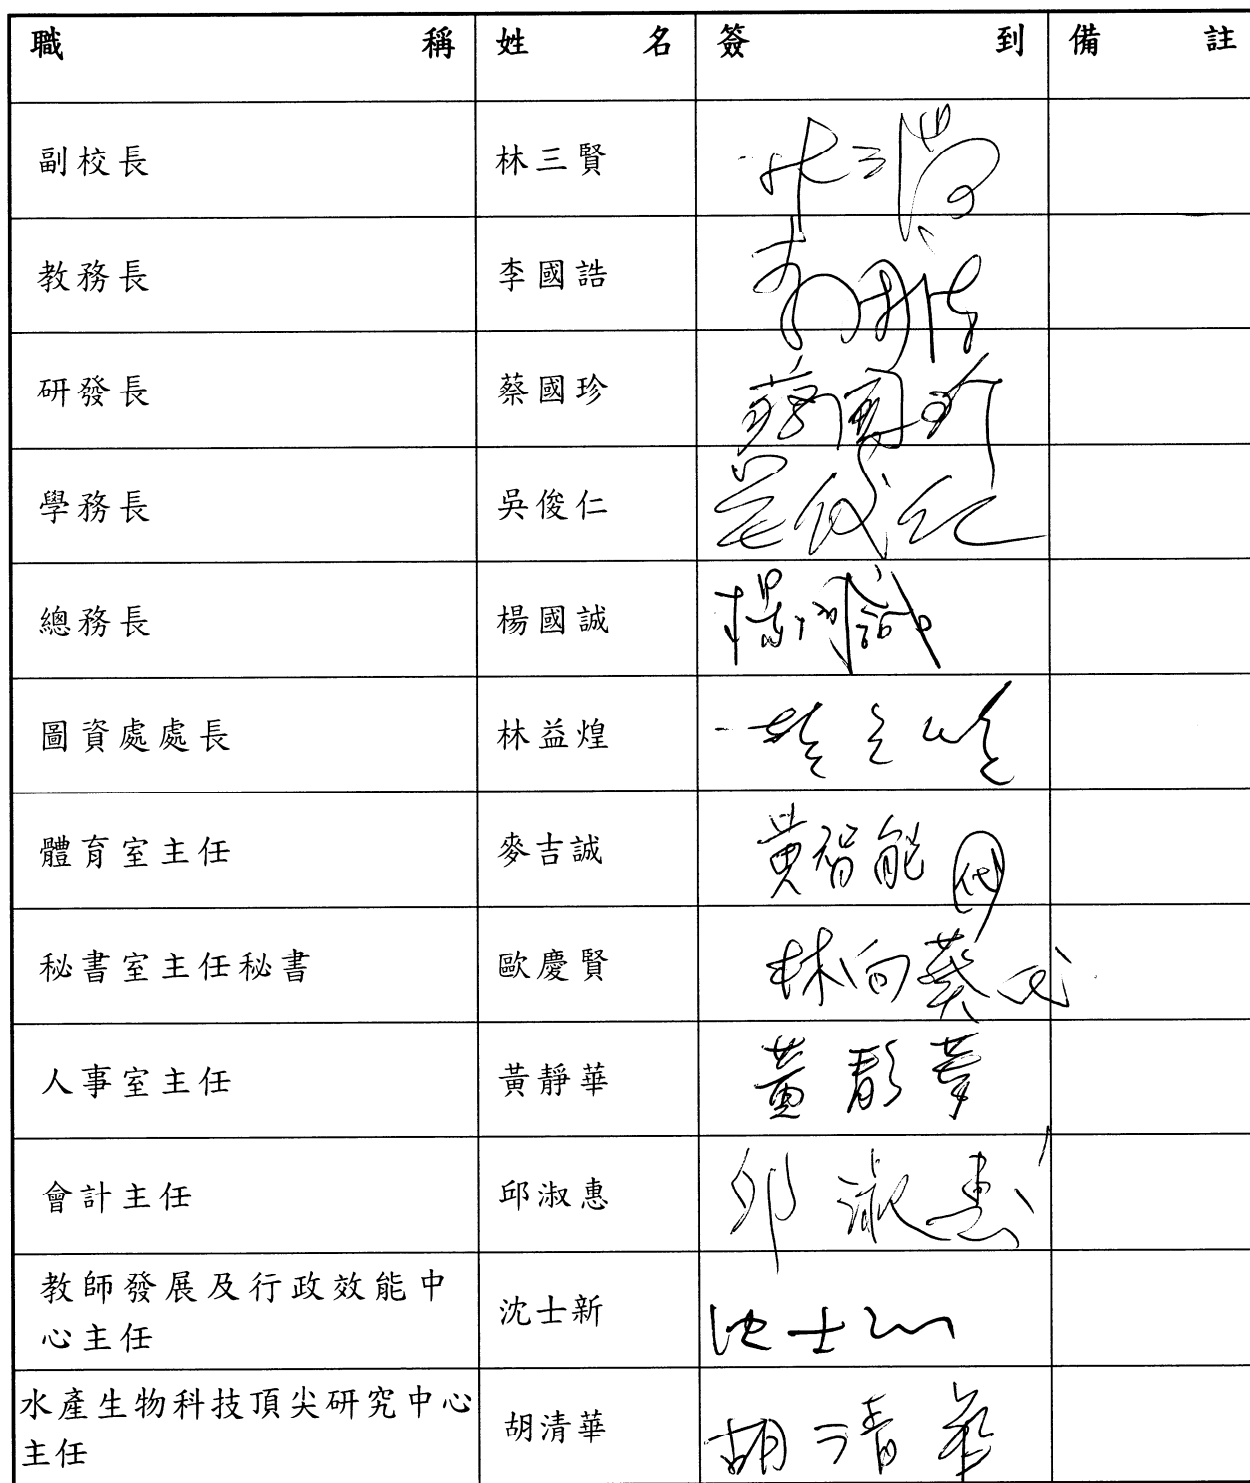 職稱 姓名 簽到 備註
副校長 林三賢 林三賢
教務長 李國誥 李國誥
研發長 蔡國珍 蔡國珍
學務長 吳俊仁 吳俊仁
總務長 楊國誠 楊國誠
圖資處處長 林益煌 林益煌
體育室主任 麥吉誠 黃智能 代
秘書室主任秘書 歐慶賢 林向葵 代
人事室主任 黃靜華 黃靜華
會計主任 邱淑惠 邱淑惠
教師發展及行政效能中
心主任 沈士新 沈士新
水產生物科技頂尖研究中心
主任 胡清華 胡清華